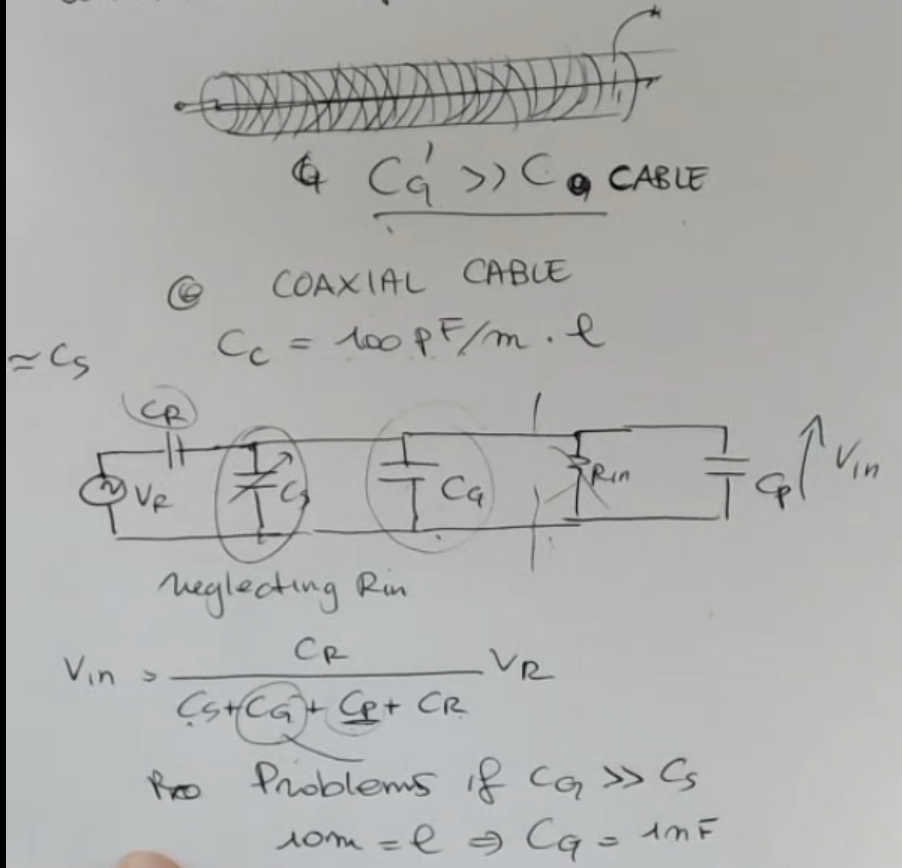 C'G >> C CABLE
COAXIAL CABLE
Cc = 100 pF/m . l
≃ Cs
CR
VR
Cs
CG
Rin
Cp
Vin
Neglecting Rin
Vin = CR / (Cs + CG + Cp + CR) VR
Problems if CG >> Cs
10m = l ⇒ CG = 1nF